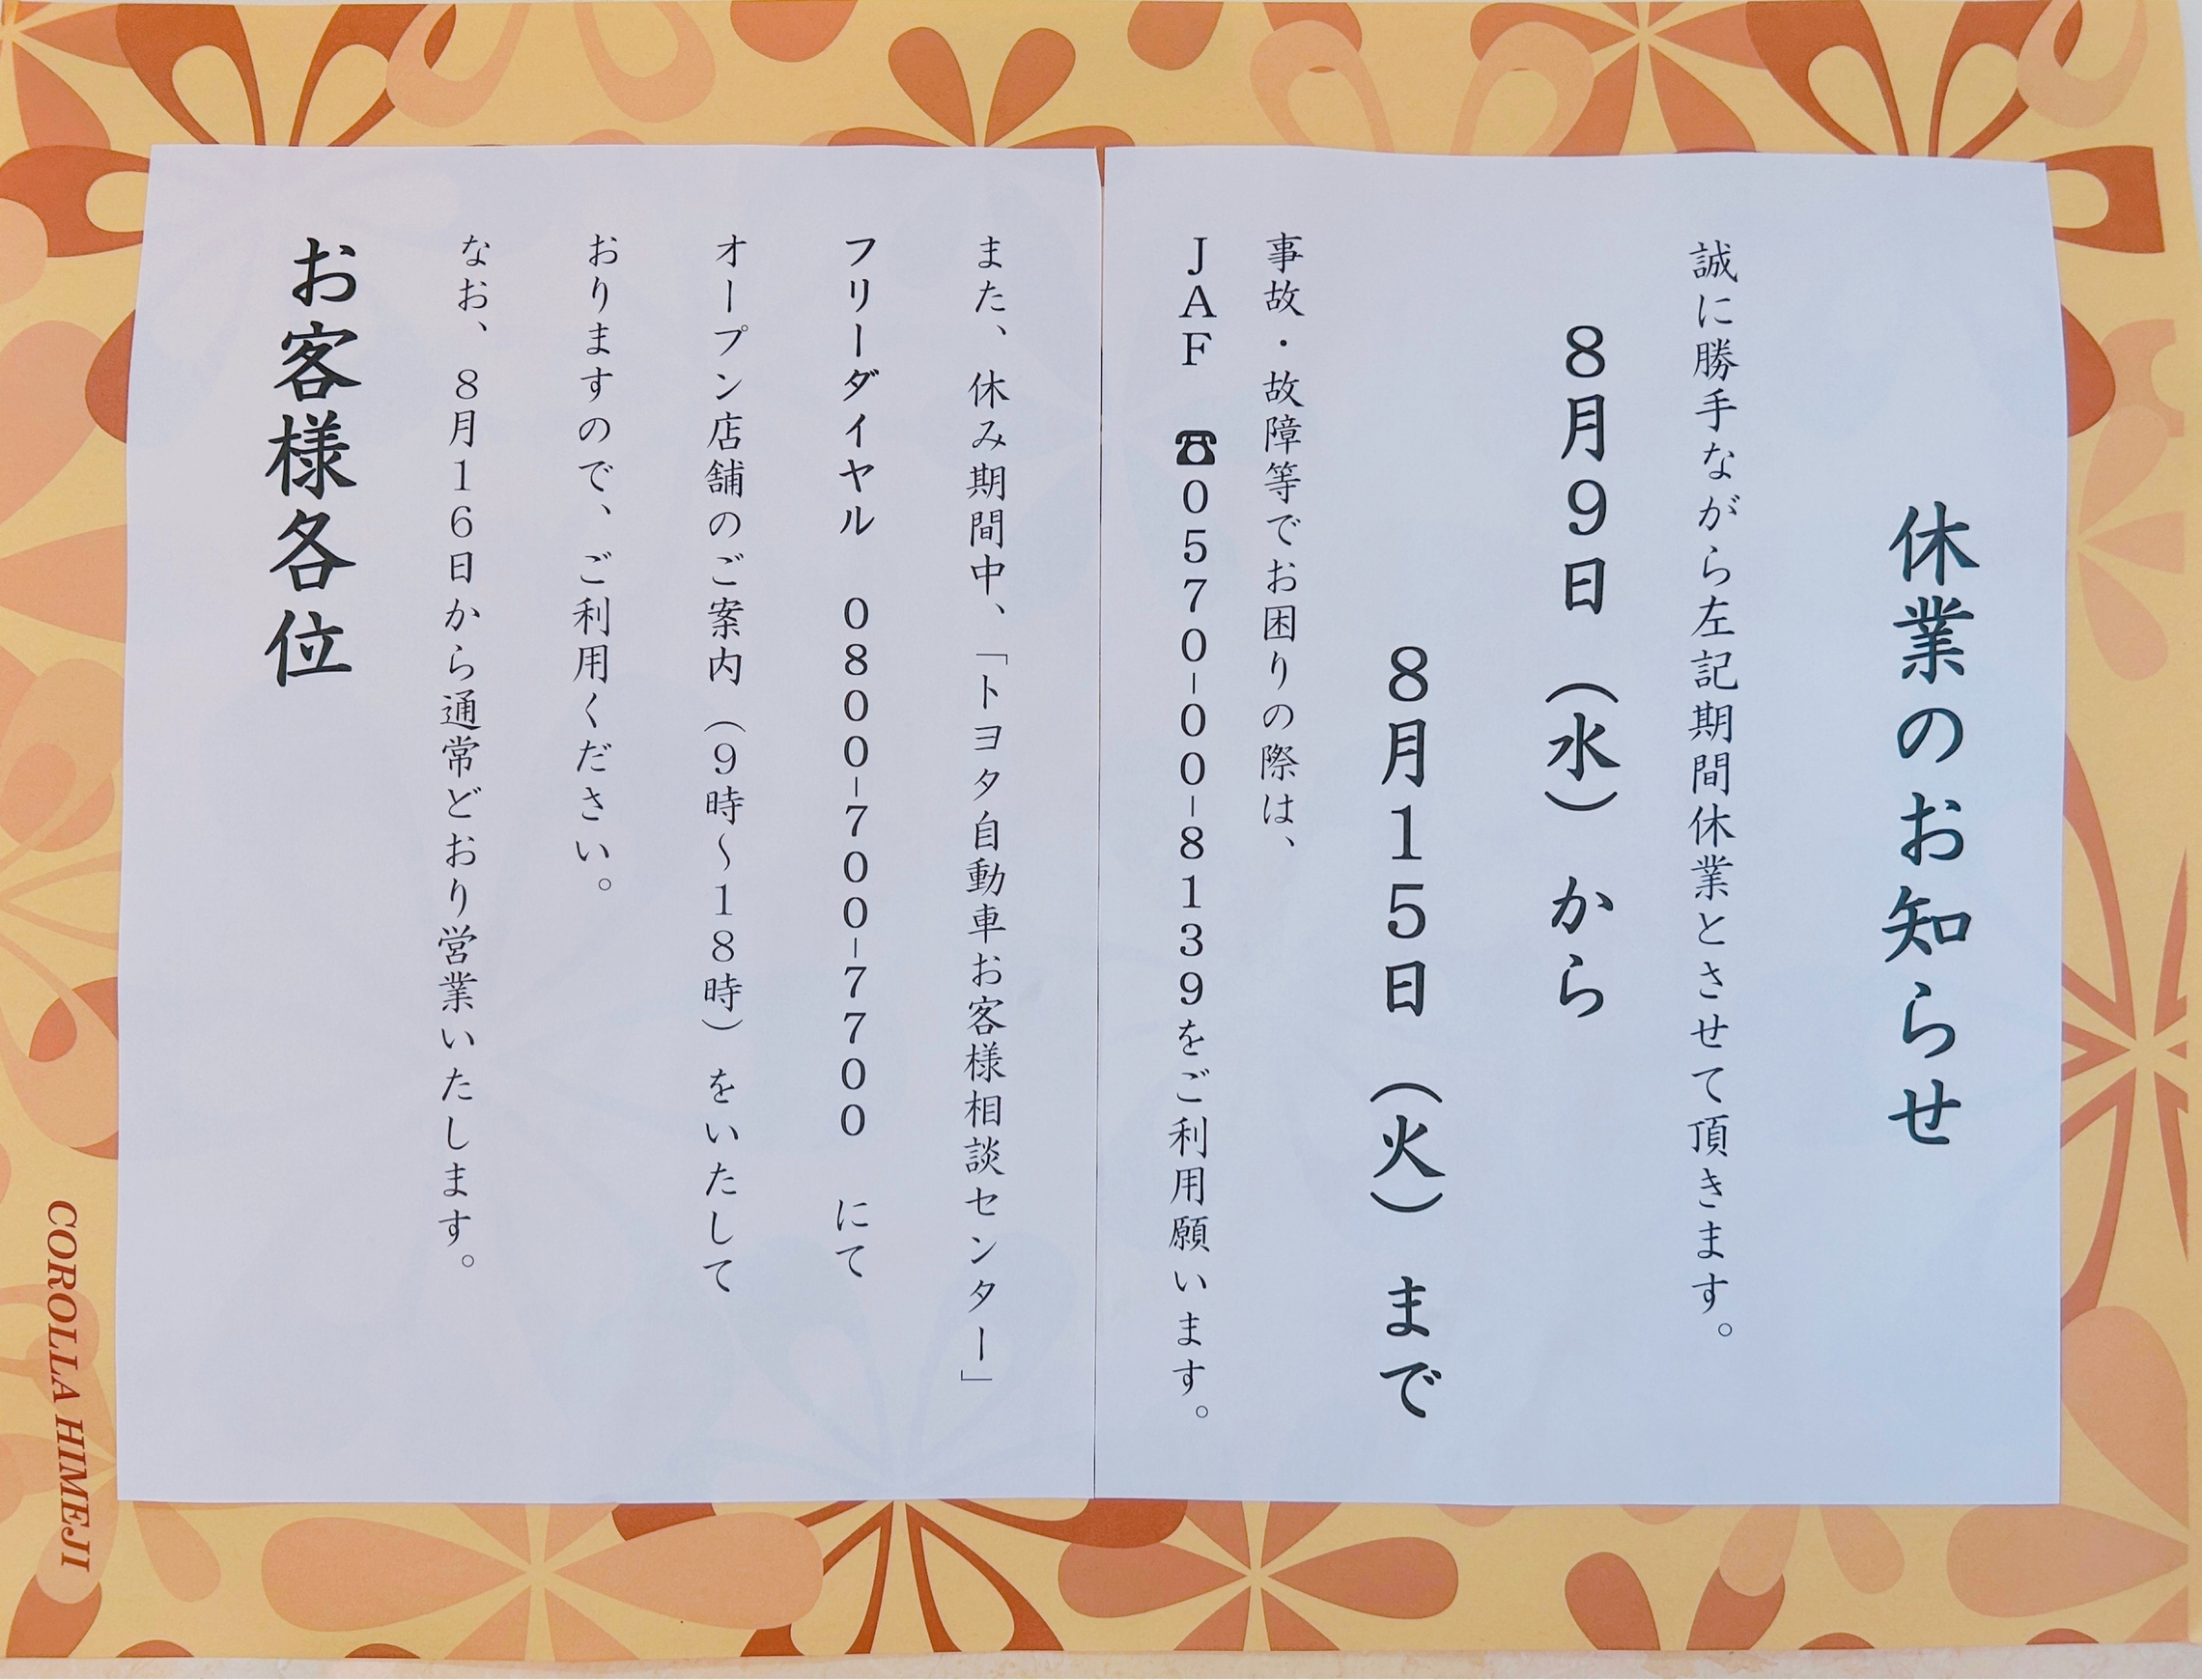 休業のお知らせ
誠に勝手ながら左記期間休業とさせて頂きます。
８月９日（水）から
８月１５日（火）まで
事故・故障等でお困りの際は、
ＪＡＦ　☎０５７０-００-８１３９をご利用願います。
また、休み期間中、「トヨタ自動車お客様相談センター」
フリーダイヤル　０８００-７００-７７００　にて
オープン店舗のご案内（９時～１８時）をいたして
おりますので、ご利用ください。
なお、８月１６日から通常どおり営業いたします。
お客様各位
COROLLA HIMEJI